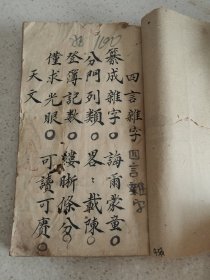 四言雜字 四言雜字
纂成雜字○誨爾蒙童○
分門列類○畧々載陳○
登簿記数○縷晰條分○
僅求光眼○可讀可賡○
天文